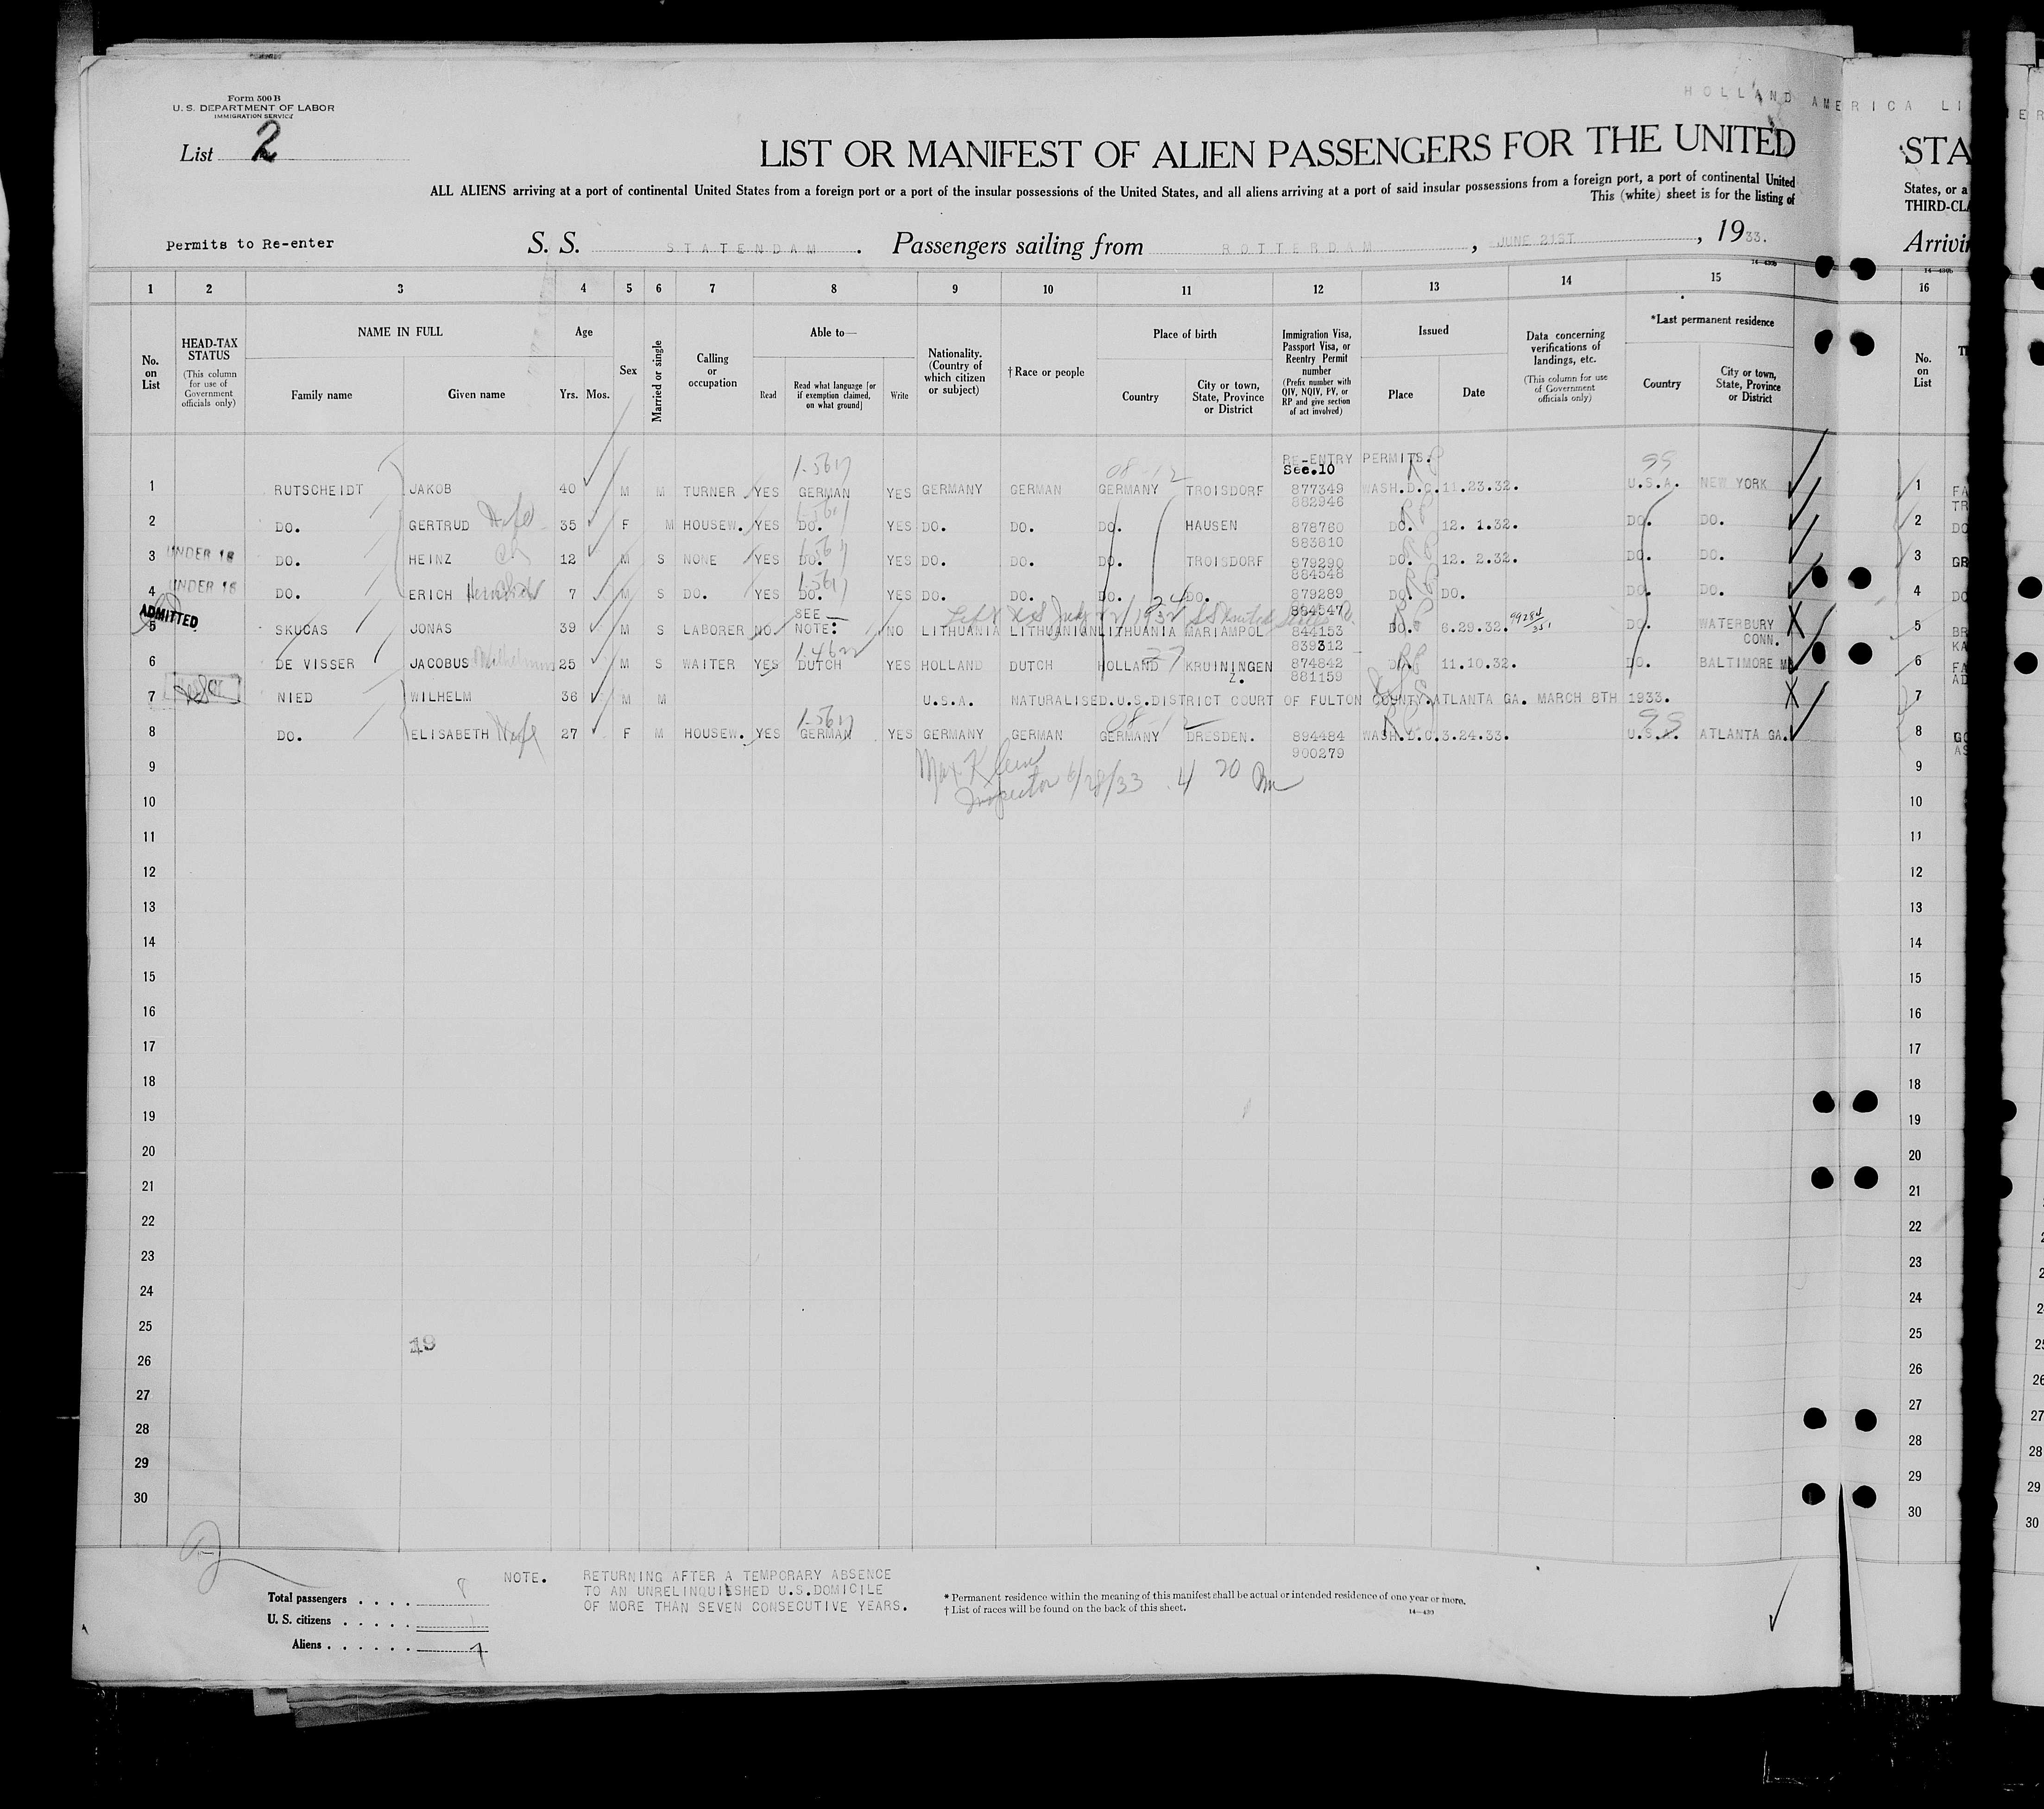 HOLLAND AMERICA LI
Form 500 B
U. S. DEPARTMENT OF LABOR
IMMIGRATION SERVICE
List 2
LIST OR MANIFEST OF ALIEN PASSENGERS FOR THE UNITED STA
ALL ALIENS arriving at a port of continental United States from a foreign port or a port of the insular possessions of the United States, and all aliens arriving at a port of said insular possessions from a foreign port, a port of continental United States, or a
This (white) sheet is for the listing of THIRD-CLA
Permits to Re-enter S. S. STATENDAM. Passengers sailing from ROTTERDAM, JUNE 21ST, 1933. Arrivin
14-430b 14-430b
1 2 3 4 5 6 7 8 9 10 11 12 13 14 15 16
No. on List
HEAD-TAX STATUS (This column for use of Government officials only)
NAME IN FULL
Family name
Given name
Age
Yrs. Mos.
Sex
Married or single
Calling or occupation
Able to—
Read
Read what language [or if exemption claimed, on what ground]
Write
Nationality. (Country of which citizen or subject)
†Race or people
Place of birth
Country
City or town, State, Province or District
Immigration Visa, Passport Visa, or Reentry Permit number (Prefix number with QIV, NQIV, PV, or RP and give section of act involved)
Issued
Place
Date
Data concerning verifications of landings, etc. (This column for use of Government officials only)
*Last permanent residence
Country
City or town, State, Province or District
No. on List
RE-ENTRY PERMITS.
Sec.10
1-5617 08-12 99
1 RUTSCHEIDT JAKOB 40 M M TURNER YES GERMAN YES GERMANY GERMAN GERMANY TROISDORF 877349 WASH.D.C. 11.23.32. U.S.A. NEW YORK 1
882946
2 DO. GERTRUD 35 F M HOUSEW. YES DO. YES DO. DO. DO. HAUSEN 878760 DO. 12. 1.32. DO. DO. 2
883810
3 UNDER 16 DO. HEINZ 12 M S NONE YES DO. YES DO. DO. DO. TROISDORF 879290 DO. 12. 2.32. DO. DO. 3
884548
4 UNDER 16 DO. ERICH 7 M S DO. YES DO. YES DO. DO. DO. DO. 879289 DO. DO. DO. DO. 4
884547
ADMITTED SEE Left U.S. July 22/1932 SS United States
5 SKUCAS JONAS 39 M S LABORER NO. NOTE: NO LITHUANIA LITHUANIAN LITHUANIA MARIAMPOL 844153 DO. 6.29.32. DO. WATERBURY CONN. 5
839312
6 DE VISSER JACOBUS Wilhelmus 25 M S WAITER YES DUTCH YES HOLLAND DUTCH HOLLAND KRUININGEN Z. 874842 DO. 11.10.32. DO. BALTIMORE MD 6
881159
7 NIED WILHELM 36 M M U.S.A. NATURALISED.U.S.DISTRICT COURT OF FULTON COUNTY.ATLANTA GA. MARCH 8TH 1933. 7
8 DO. ELISABETH Wife 27 F M HOUSEW. YES GERMAN YES GERMANY GERMAN GERMANY DRESDEN. 894484 WASH.D.C. 3.24.33. U.S.A. ATLANTA GA. 8
900279
Max Klein
Inspector 6/28/33 4 20 Pm
9 9
10 10
11 11
12 12
13 13
14 14
15 15
16 16
17 17
18 18
19 19
20 20
21 21
22 22
23 23
24 24
25 25
26 26
27 27
28 28
29 29
30 30
NOTE. RETURNING AFTER A TEMPORARY ABSENCE
TO AN UNRELINQUISHED U.S.DOMICILE
OF MORE THAN SEVEN CONSECUTIVE YEARS.
Total passengers . . . . 8
U. S. citizens . . . . . 1
Aliens . . . . . . 7
* Permanent residence within the meaning of this manifest shall be actual or intended residence of one year or more.
† List of races will be found on the back of this sheet.
14-430